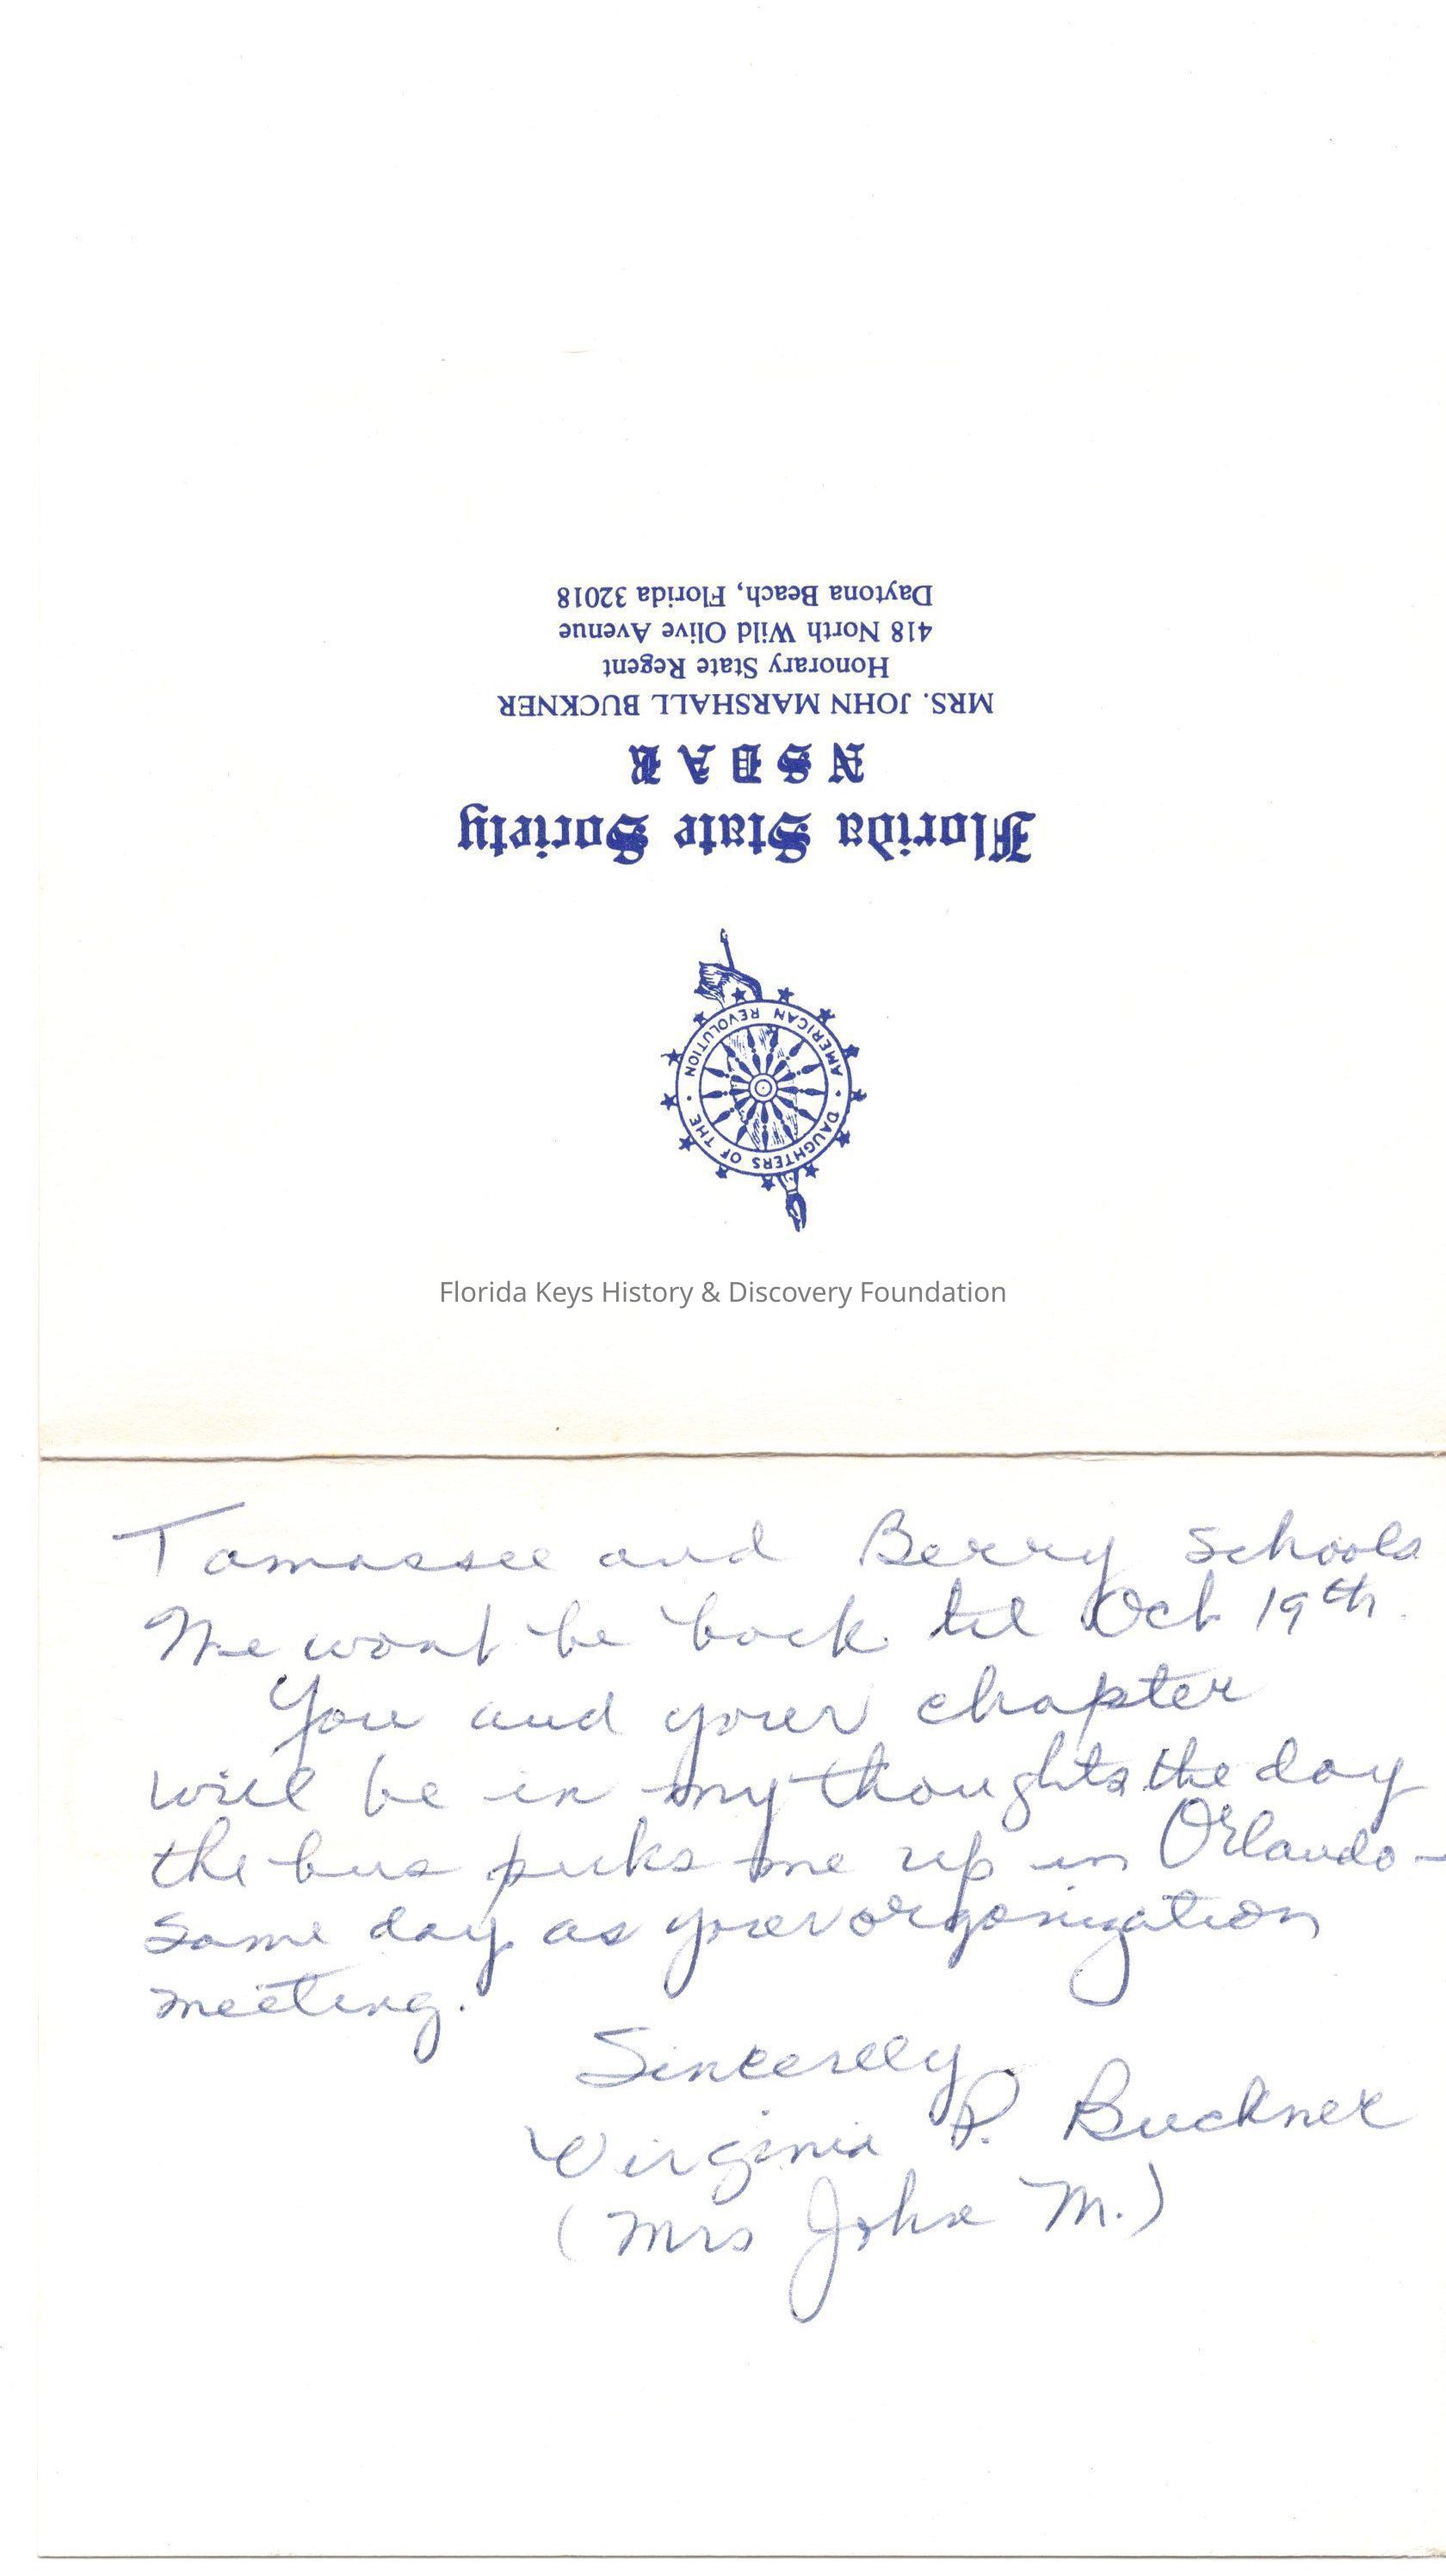 DAUGHTERS OF THE • AMERICAN REVOLUTION •
Florida State Society
NSDAR
MRS. JOHN MARSHALL BUCKNER
Honorary State Regent
418 North Wild Olive Avenue
Daytona Beach, Florida 32018
Florida Keys History & Discovery Foundation
Tamassee and Berry Schools
We wont be back til Oct 19th.
You and your chapter
will be in my thoughts the day
the bus picks me up in Orlando -
same day as your organization
meeting.
Sincerely
Virginia P. Buckner
(Mrs John M.)